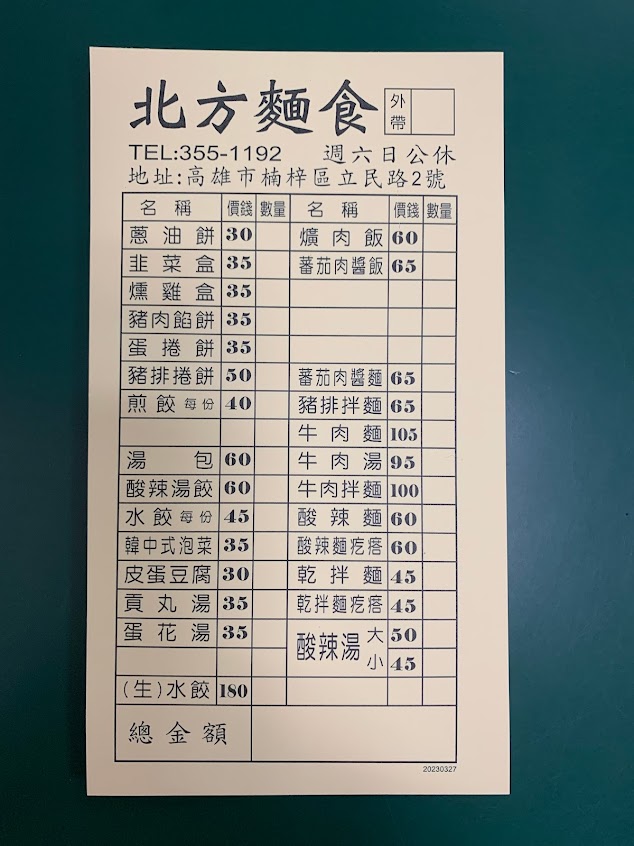 北方麵食 外帶
TEL:355-1192 週六日公休
地址:高雄市楠梓區立民路2號
名稱 價錢 數量 名稱 價錢 數量
蔥油餅 30 爌肉飯 60
韭菜盒 35 蕃茄肉醬飯 65
燻雞盒 35
豬肉餡餅 35
蛋捲餅 35
豬排捲餅 50 蕃茄肉醬麵 65
煎餃 每份 40 豬排拌麵 65
牛肉麵 105
湯包 60 牛肉湯 95
酸辣湯餃 60 牛肉拌麵 100
水餃 每份 45 酸辣麵 60
韓中式泡菜 35 酸辣麵疙瘩 60
皮蛋豆腐 30 乾拌麵 45
貢丸湯 35 乾拌麵疙瘩 45
蛋花湯 35 酸辣湯 大 50
小 45
(生)水餃 180
總金額
20230327